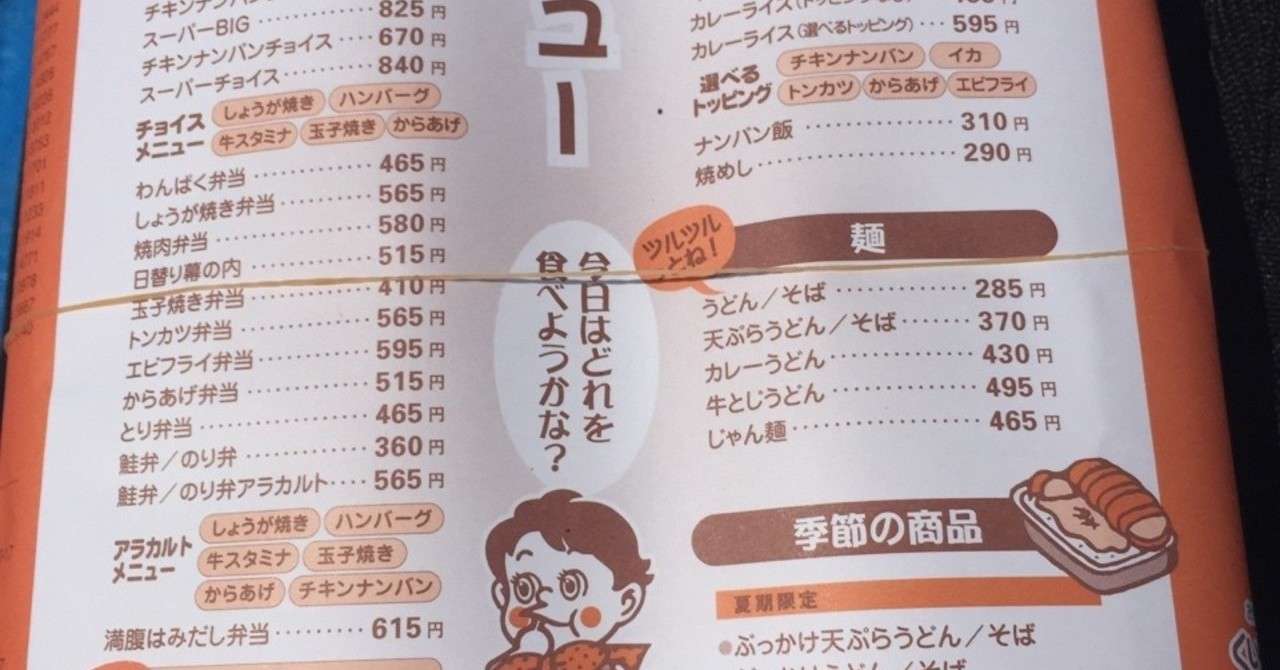 チキンナンバン
スーパーBIG 825円
チキンナンバンチョイス 670円
スーパーチョイス 840円
チョイスメニュー
しょうが焼き ハンバーグ
牛スタミナ 玉子焼き からあげ
わんぱく弁当 465円
しょうが焼き弁当 565円
焼肉弁当 580円
日替り幕の内 515円
玉子焼き弁当 410円
トンカツ弁当 565円
エビフライ弁当 595円
からあげ弁当 515円
とり弁当 465円
鮭弁/のり弁 360円
鮭弁/のり弁アラカルト 565円
アラカルトメニュー
しょうが焼き ハンバーグ
牛スタミナ 玉子焼き
からあげ チキンナンバン
満腹はみだし弁当 615円
ュー
今日はどれを
食べようかな?
カレーライス
カレーライス(選べるトッピング) 595円
選べるトッピング
チキンナンバン イカ
トンカツ からあげ エビフライ
ナンバン飯 310円
焼めし 290円
ツルツル
とね!
麺
うどん/そば 285円
天ぷらうどん/そば 370円
カレーうどん 430円
牛とじうどん 495円
じゃん麺 465円
季節の商品
夏期限定
●ぶっかけ天ぷらうどん/そば